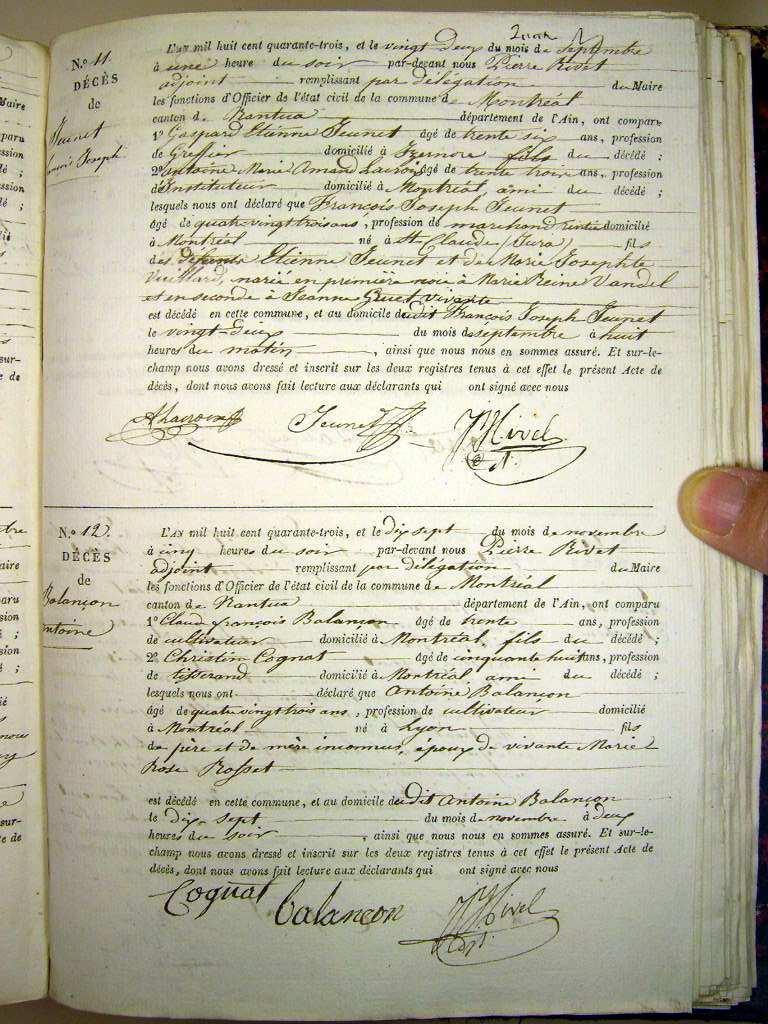 N.º 11.
DÉCÈS
de
Jeunet
Joseph
L'AN mil huit cent quarante-trois, et le vingt-deux du mois de septembre
à une heure du soir par-devant nous Pierre Rivet
adjoint remplissant par délégation du Maire
les fonctions d'Officier de l'état civil de la commune de Montréal
canton de Nantua département de l'Ain, ont comparu
1º Gaspard Etienne Jeunet âgé de trente six ans, profession
de Greffier domicilié à Izernore fils du décédé ;
2º Antoine Marie Amand Lacroix âgé de trente trois ans, profession
d'Instituteur domicilié à Montréal, ami du décédé ;
lesquels nous ont déclaré que François Joseph Jeunet
âgé de quatre vingt trois ans, profession de marchand domicilié
à Montréal né à St Claude (Jura) fils
des défunts Etienne Jeunet et de Marie Josephte
Vuillard, marié en première noce à Marie Reine Vandel
et en seconde à Jeanne Gruet vivante
est décédé en cette commune, et au domicile dudit François Joseph Jeunet
le vingt-deux du mois de septembre à huit
heures du matin, ainsi que nous nous en sommes assuré. Et sur-le-
champ nous avons dressé et inscrit sur les deux registres tenus à cet effet le présent Acte de
décès, dont nous avons fait lecture aux déclarants qui ont signé avec nous
ALacroix Jeunet Rivet
N.º 12.
DÉCÈS
de
Balançon
Antoine
L'AN mil huit cent quarante-trois, et le dix sept du mois de novembre
à cinq heures du soir par-devant nous Pierre Rivet
adjoint remplissant par délégation du Maire
les fonctions d'Officier de l'état civil de la commune de Montréal
canton de Nantua département de l'Ain, ont comparu
1º Claud François Balançon âgé de trente ans, profession
de cultivateur domicilié à Montréal, fils du décédé ;
2º Christin Cognat âgé de cinquante huit ans, profession
de tisserand domicilié à Montréal ami du décédé ;
lesquels nous ont déclaré que Antoine Balançon
âgé de quatre vingt trois ans, profession de cultivateur domicilié
à Montréal né à Lyon fils
de père et de mère inconnus, époux de vivante Marie
Rose Rosset
est décédé en cette commune, et au domicile dudit Antoine Balançon
le dix-sept du mois de novembre à deux
heures du soir, ainsi que nous nous en sommes assuré. Et sur-le-
champ nous avons dressé et inscrit sur les deux registres tenus à cet effet le présent Acte de
décès, dont nous avons fait lecture aux déclarants qui ont signé avec nous
Cognat Balançon Rivet
adjt.